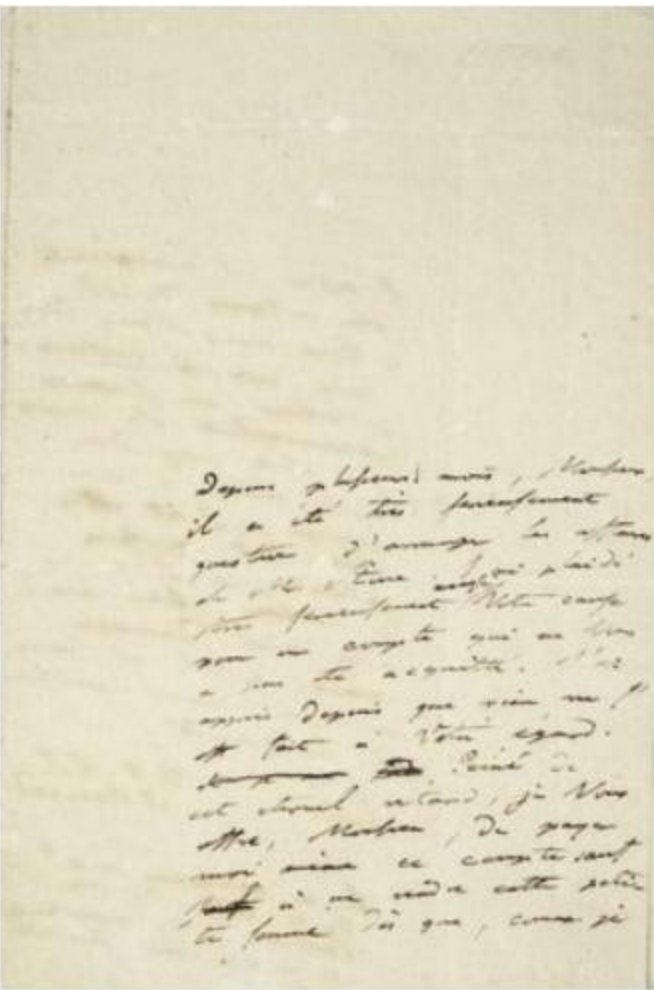 Depuis plusieurs mois, Monsieur,
il a été très serieusement
question d'arranger les affaires
de
très serieusement Votre cause
pour un compte qui ne vous
a pas été acquitté. J'ai
appris depuis que rien ne s'
est fait à Votre égard.
Peiné de
cet eternel retard, je Vous
offre, Monsieur, de payer
moi même ce compte sauf
à me rendre cette peti-
te somme dès que, comme je